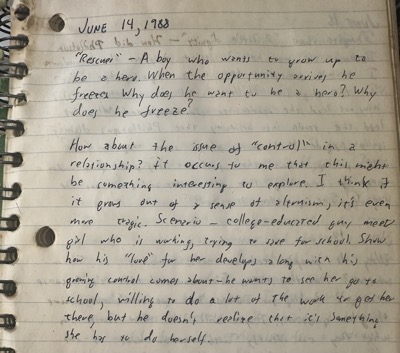 JUNE 14, 1988
"Rescuer" – A boy who wants to grow up to
be a hero. When the opportunity arrives he
freezes. Why does he want to be a hero? Why
does he freeze?
How about the issue of "control" in a
relationship? It occurs to me that this might
be something interesting to explore. I think if
it grows out of a sense of altruism, it's even
more tragic. Scenario – college-educated guy meets
girl who is working, trying to save for school. Show
how his "love" for her develops along with his
growing control comes about – he wants to see her go to
school, willing to do a lot of the work to get her
there, but he doesn't realize that it's something
she has to do herself.